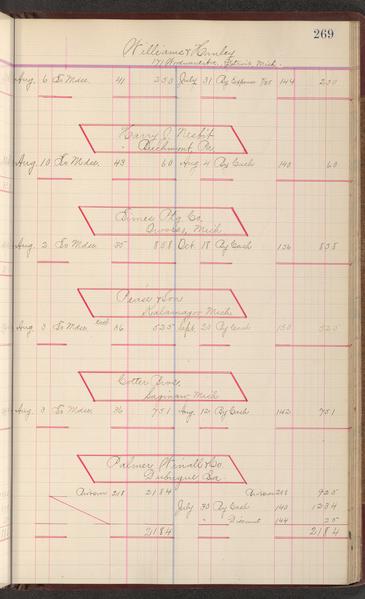 269
Williams & Hunley
171 Woodward Ave, Detroit, Mich.
Aug. 6 To Mdse. 41 250 July 31 By Expense 144 250
Harry J. Nesbit
Pa.
Aug. 10 To Mdse. 43 60 Aug 4 By Cash 140 60
Times Ptg Co.
Owosso, Mich
Aug. 2 To Mdse. 35 858 Oct. 18 By Cash 156 858
Pease & Son
Kalamazoo Mich
Aug. 3 To Mdse. 36 525 Sept. 20 By Cash 150 525
Cotter Bros.
Saginaw Mich
Aug. 3 To Mdse. 36 751 Aug 12 By Cash 142 751
Palmer, Winall & Co.
Dubuque, Ia
218 2184 218 925
July 30 By Cash 140 1234
" Discount 144 25
2184 2184